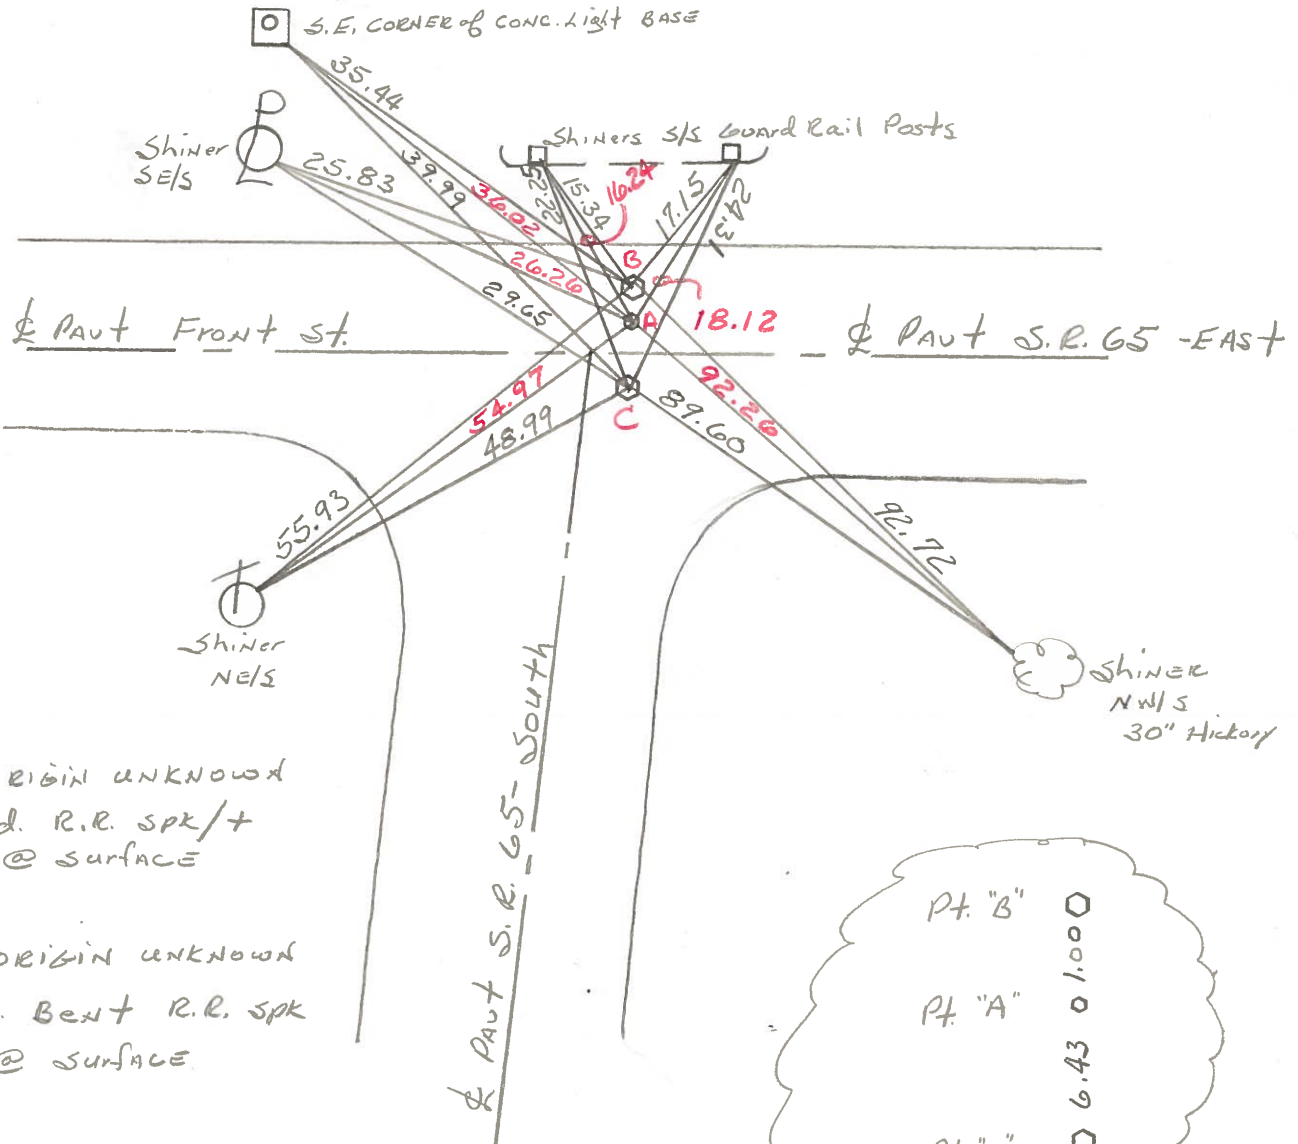 S.E. CORNER of CONC. Light BASE
35.44
Shiner
SE/S
Shiners S/S Guard Rail Posts
25.83
39.99
36.02
52.22
15.34
16.24
17.15
24.31
26.26
29.65
B
A
18.12
℄ PAVt Front St.
℄ PAVt S.R. 65 -EASt
54.97
48.99
C
92.26
89.60
55.93
92.72
Shiner
NE/S
SHINER
NW/S
30" Hickory
℄ PAVt S.R. 65- South
RIGIN UNKNOWN
d. R.R. Spk/+
@ SurfACE
ORIGIN UNKNOWN
. Bent R.R. Spk
@ SurfACE
Pt. "B"
1.00
Pt. "A"
6.43